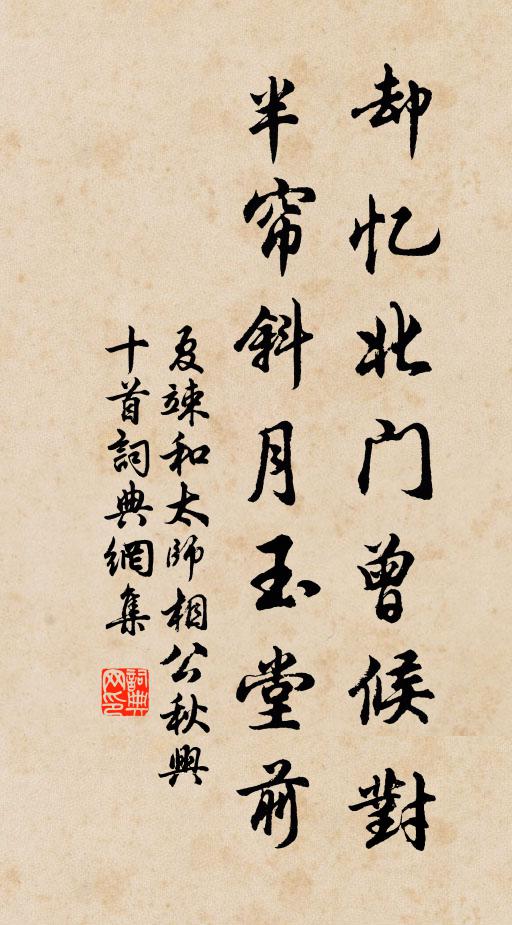 却忆北门曾候對
半帘斜月玉堂前
夏竦和太师相公秋興
十首詞典網集
詞典网印